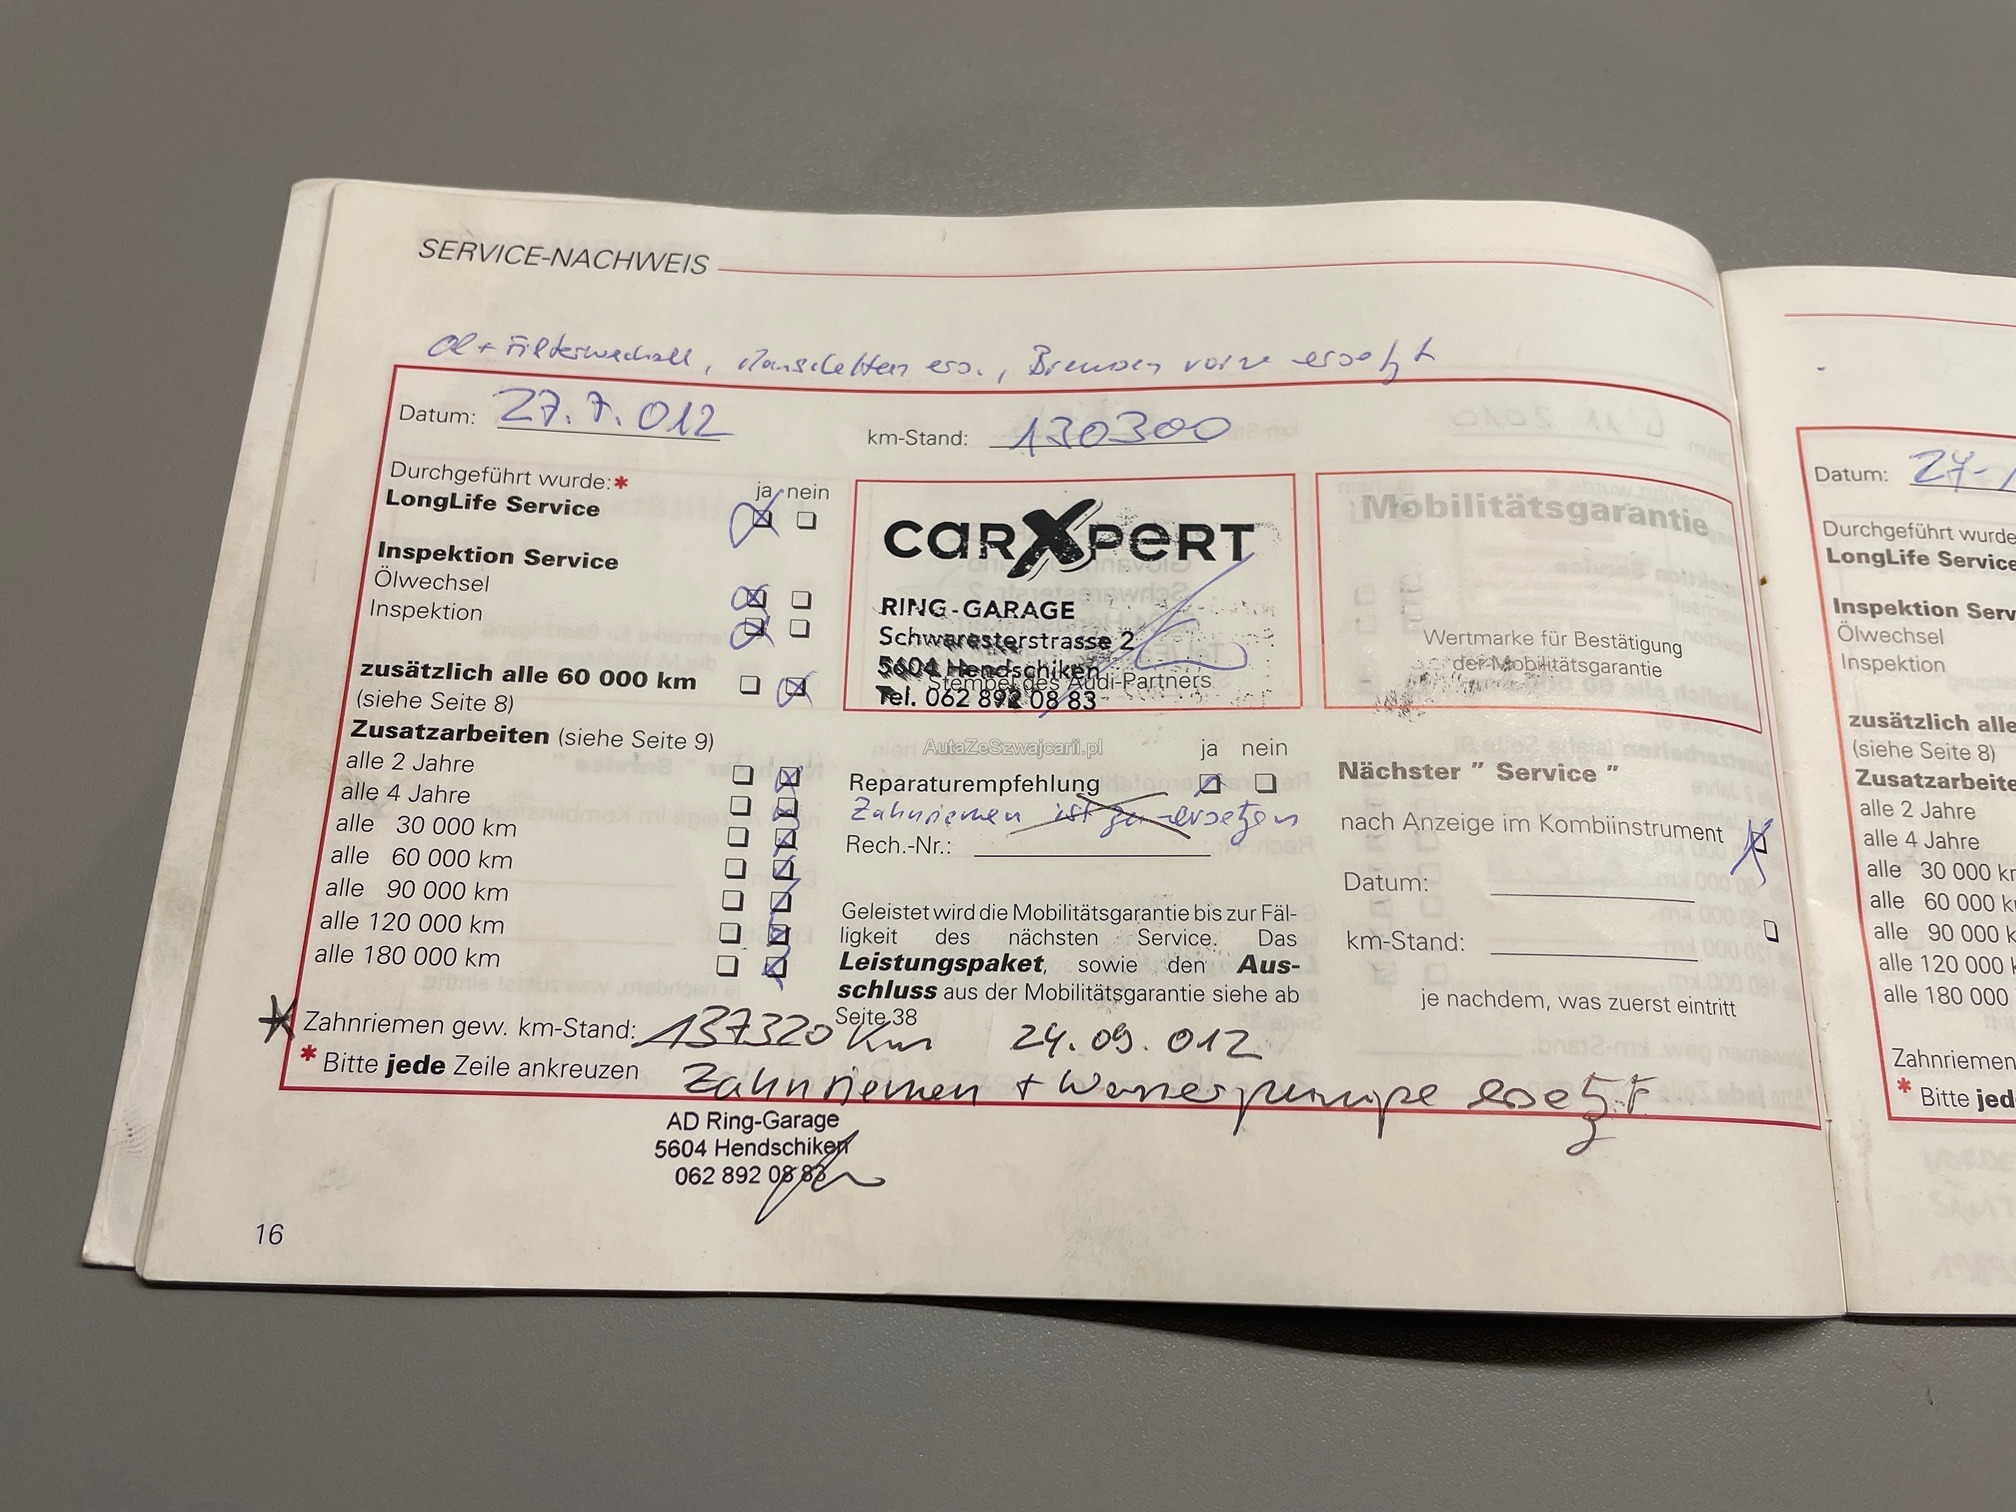 SERVICE-NACHWEIS
Öl + Filterwechsel, Manschetten ers., Bremsen vorne ersetzt
Datum: 27.7.012
km-Stand: 130300
Durchgeführt wurde:*
ja nein
LongLife Service
Inspektion Service
Ölwechsel
Inspektion
zusätzlich alle 60 000 km
(siehe Seite 8)
Zusatzarbeiten (siehe Seite 9)
alle 2 Jahre
alle 4 Jahre
alle 30 000 km
alle 60 000 km
alle 90 000 km
alle 120 000 km
alle 180 000 km
carXpert
RING-GARAGE
Schwaresterstrasse 2
5604 Hendschiken
Stempel des Audi-Partners
Tel. 062 892 08 83
Mobilitätsgarantie
Wertmarke für Bestätigung
der Mobilitätsgarantie
AutaZeSzwajcarii.pl
ja nein
Reparaturempfehlung
Zahnriemen ist zu ersetzen
Rech.-Nr.:
Nächster " Service "
nach Anzeige im Kombiinstrument
Datum:
km-Stand:
je nachdem, was zuerst eintritt
Geleistet wird die Mobilitätsgarantie bis zur Fäl-
ligkeit des nächsten Service. Das
Leistungspaket, sowie den Aus-
schluss aus der Mobilitätsgarantie siehe ab
Seite 38
Zahnriemen gew. km-Stand: 137320 Km 24.09.012
* Bitte jede Zeile ankreuzen
Zahnriemen + Wasserpumpe ersetzt
AD Ring-Garage
5604 Hendschiken
062 892 08 83
16
Datum:
Durchgeführt wurde
LongLife Service
Inspektion Serv
Ölwechsel
Inspektion
zusätzlich alle
(siehe Seite 8)
Zusatzarbeite
alle 2 Jahre
alle 4 Jahre
alle 30 000 km
alle 60 000 k
alle 90 000 k
alle 120 000
alle 180 000
Zahnriemen
* Bitte jed